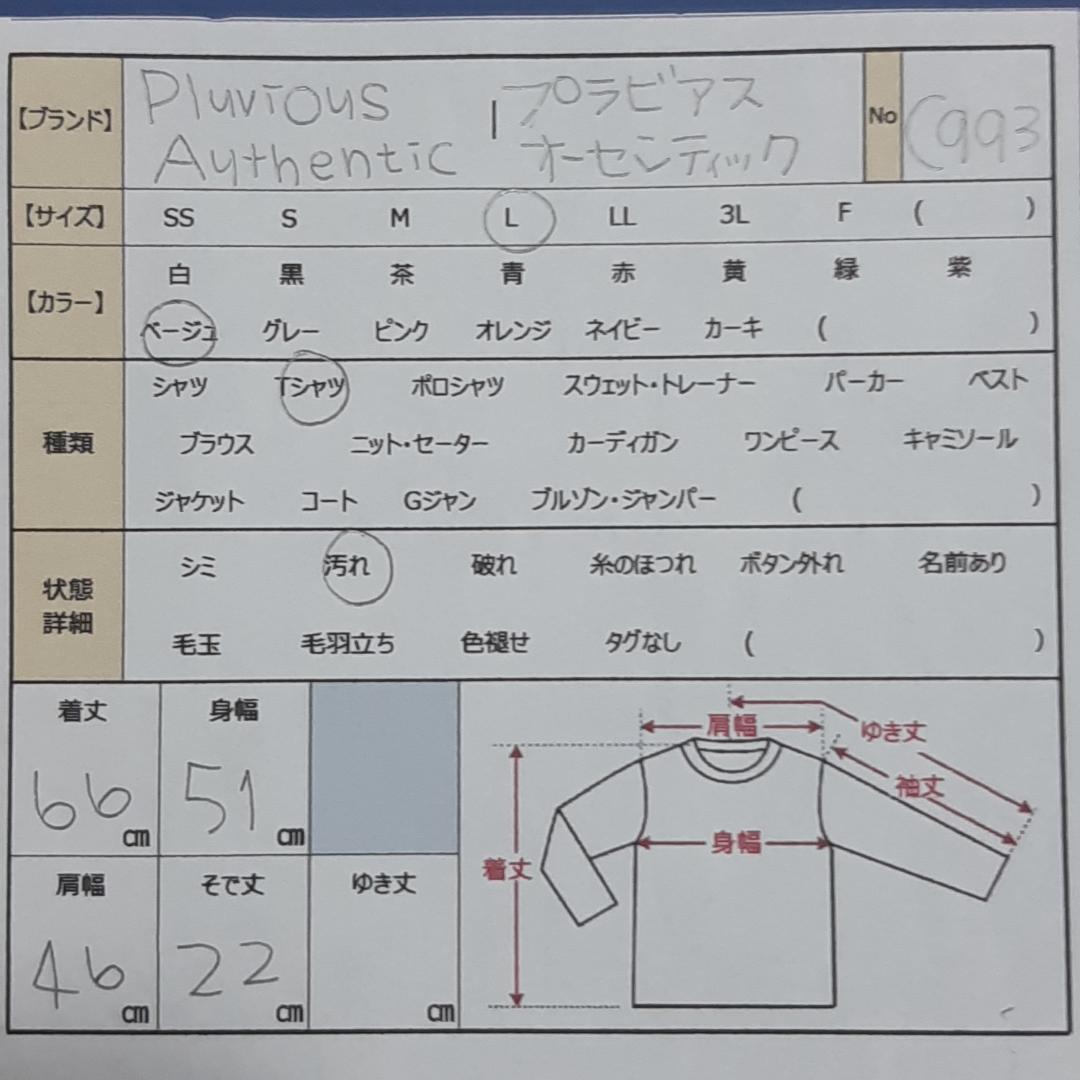 【ブランド】 Pluvious | プラビアス No C993
Authentic オーセンティック
【サイズ】 SS S M L LL 3L F ( )
【カラー】 白 黒 茶 青 赤 黄 緑 紫
ベージュ グレー ピンク オレンジ ネイビー カーキ ( )
種類 シャツ Tシャツ ポロシャツ スウェット・トレーナー パーカー ベスト
ブラウス ニット・セーター カーディガン ワンピース キャミソール
ジャケット コート Gジャン ブルゾン・ジャンパー ( )
状態 シミ 汚れ 破れ 糸のほつれ ボタン外れ 名前あり
詳細 毛玉 毛羽立ち 色褪せ タグなし ( )
着丈 身幅
66 cm 51 cm
肩幅 そで丈 ゆき丈
46 cm 22 cm cm
肩幅 ゆき丈
袖丈
身幅
着丈